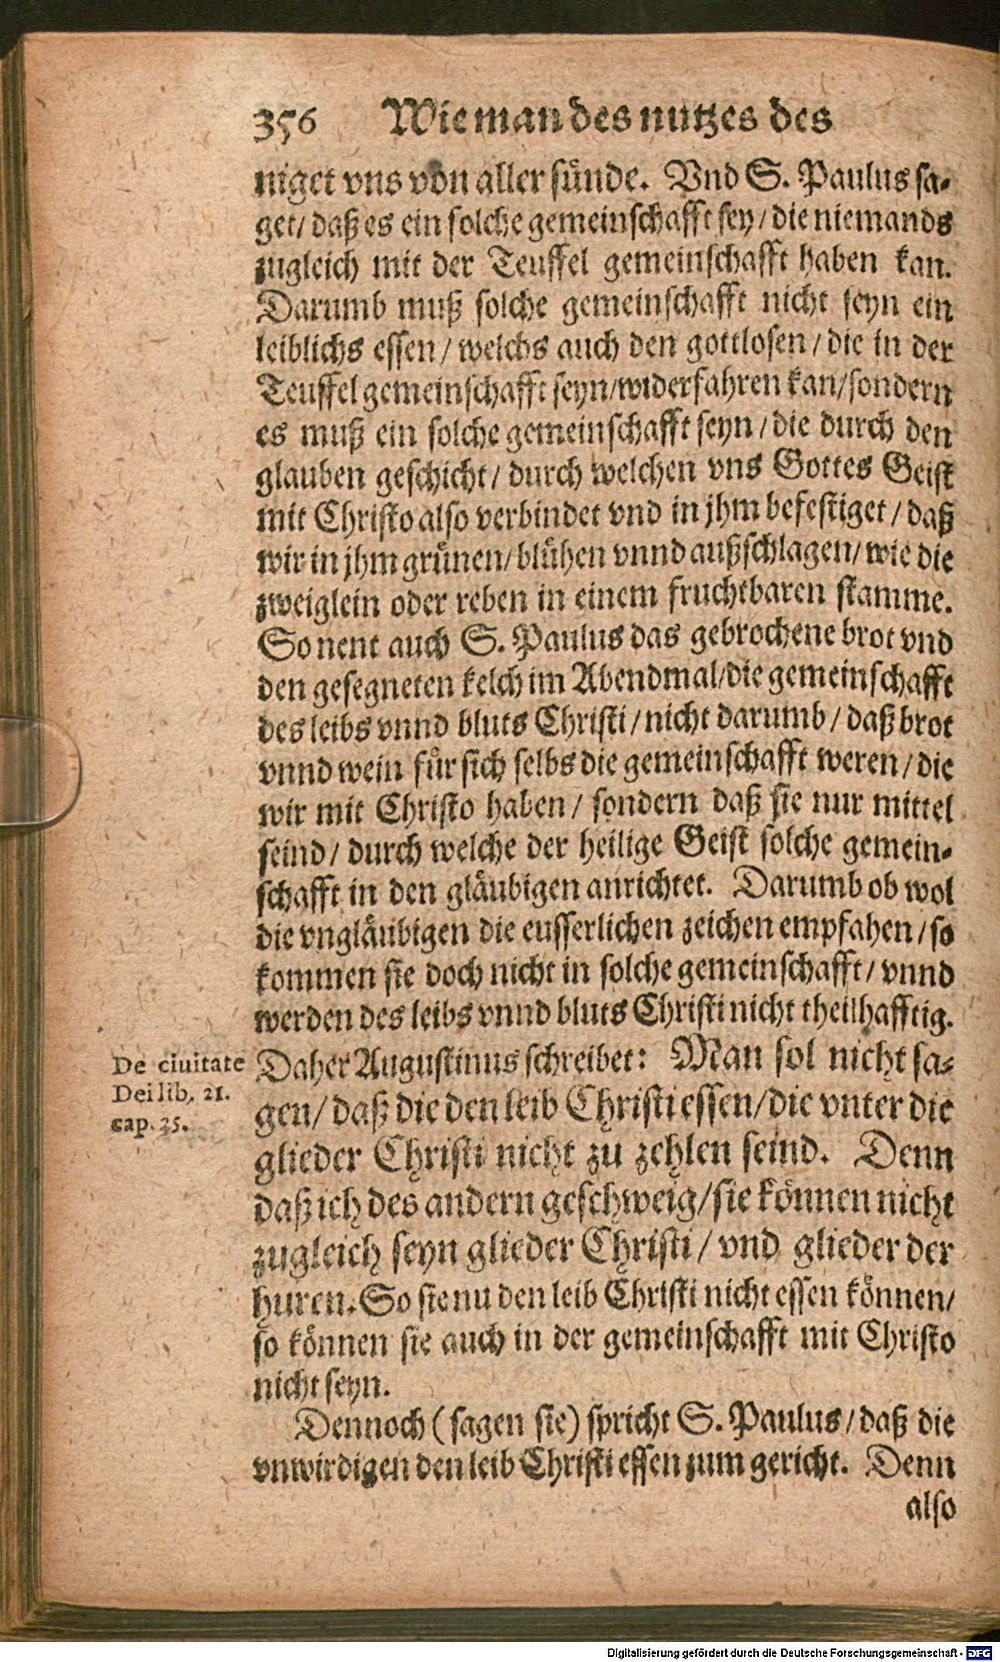 356 Wie man des nutzes des
niget vns von aller sünde. Vnd S. Paulus sa-
get/ daß es ein solche gemeinschafft sey/ die niemands
zugleich mit der Teuffel gemeinschafft haben kan.
Darumb muß solche gemeinschafft nicht seyn ein
leiblichs essen/ welchs auch den gottlosen/ die in der
Teuffel gemeinschafft seyn/ widerfahren kan/ sondern
es muß ein solche gemeinschafft seyn/ die durch den
glauben geschicht/ durch welchen vns Gottes Geist
mit Christo also verbindet vnd in jhm befestiget/ daß
wir in jhm grünen/ blühen vnnd außschlagen/ wie die
zweiglein oder reben in einem fruchtbaren stamme.
So nent auch S. Paulus das gebrochene brot vnd
den gesegneten kelch im Abendmal/ die gemeinschafft
des leibs vnnd bluts Christi/ nicht darumb/ daß brot
vnnd wein für sich selbs die gemeinschafft weren/ die
wir mit Christo haben/ sondern daß sie nur mittel
seind/ durch welche der heilige Geist solche gemein-
schafft in den gläubigen anrichtet. Darumb ob wol
die vngläubigen die eusserlichen zeichen empfahen/ so
kommen sie doch nicht in solche gemeinschafft/ vnnd
werden des leibs vnnd bluts Christi nicht theilhafftig.
De ciuitate
Dei lib. 21.
cap. 35.
Daher Augustinus schreibet: Man sol nicht sa-
gen/ daß die den leib Christi essen/ die vnter die
glieder Christi nicht zu zehlen seind. Denn
daß ich des andern geschweig/ sie können nicht
zugleich seyn glieder Christi/ vnd glieder der
huren. So sie nu den leib Christi nicht essen können/
so können sie auch in der gemeinschafft mit Christo
nicht seyn.
Dennoch (sagen sie) spricht S. Paulus/ daß die
vnwirdigen den leib Christi essen zum gericht. Denn
also
Digitalisierung gefördert durch die Deutsche Forschungsgemeinschaft - DFG